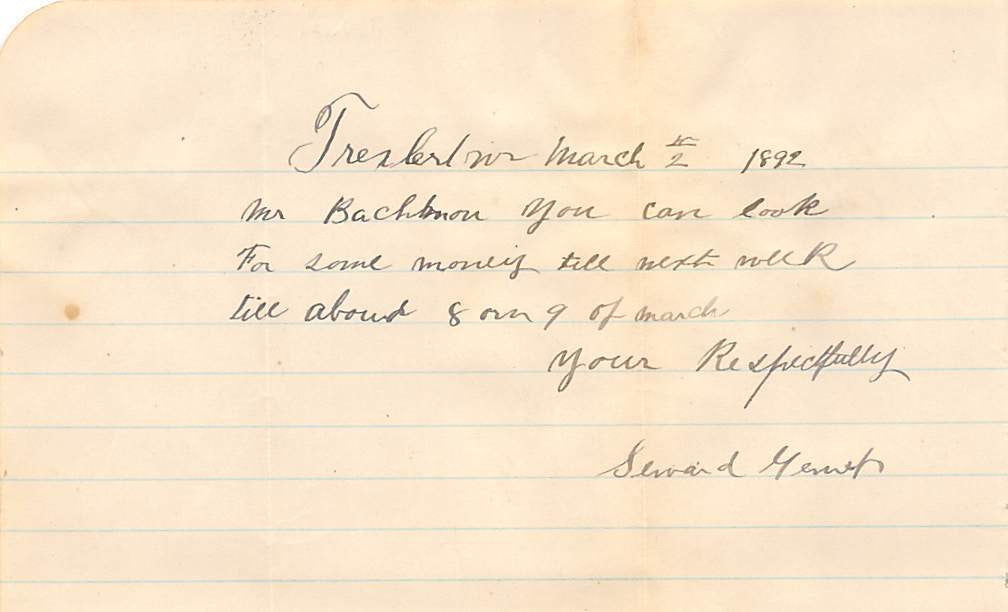 Trexlertown March 2 1892
Mr Bachman you can look
For some money till next week
till aboud 8 orn 9 of march
your Respectfully
Seward Gernet